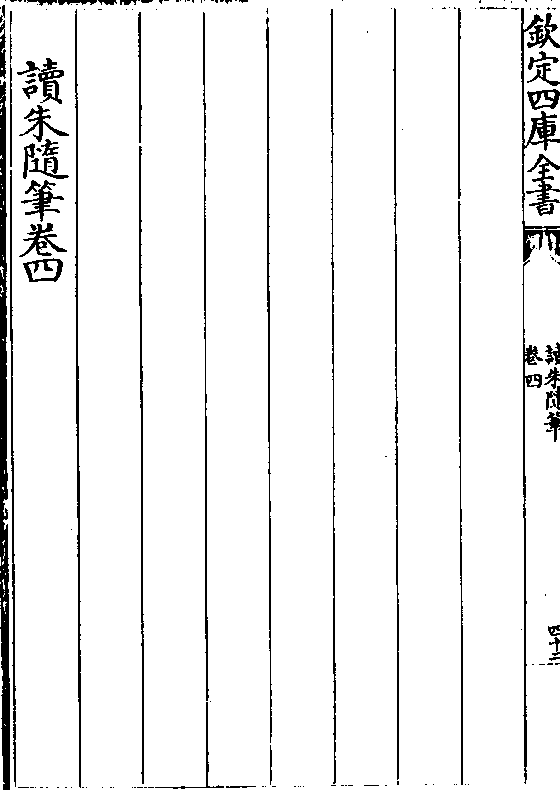 欽定四庫全書
讀朱隨筆
卷四
四十二
讀朱隨筆卷四